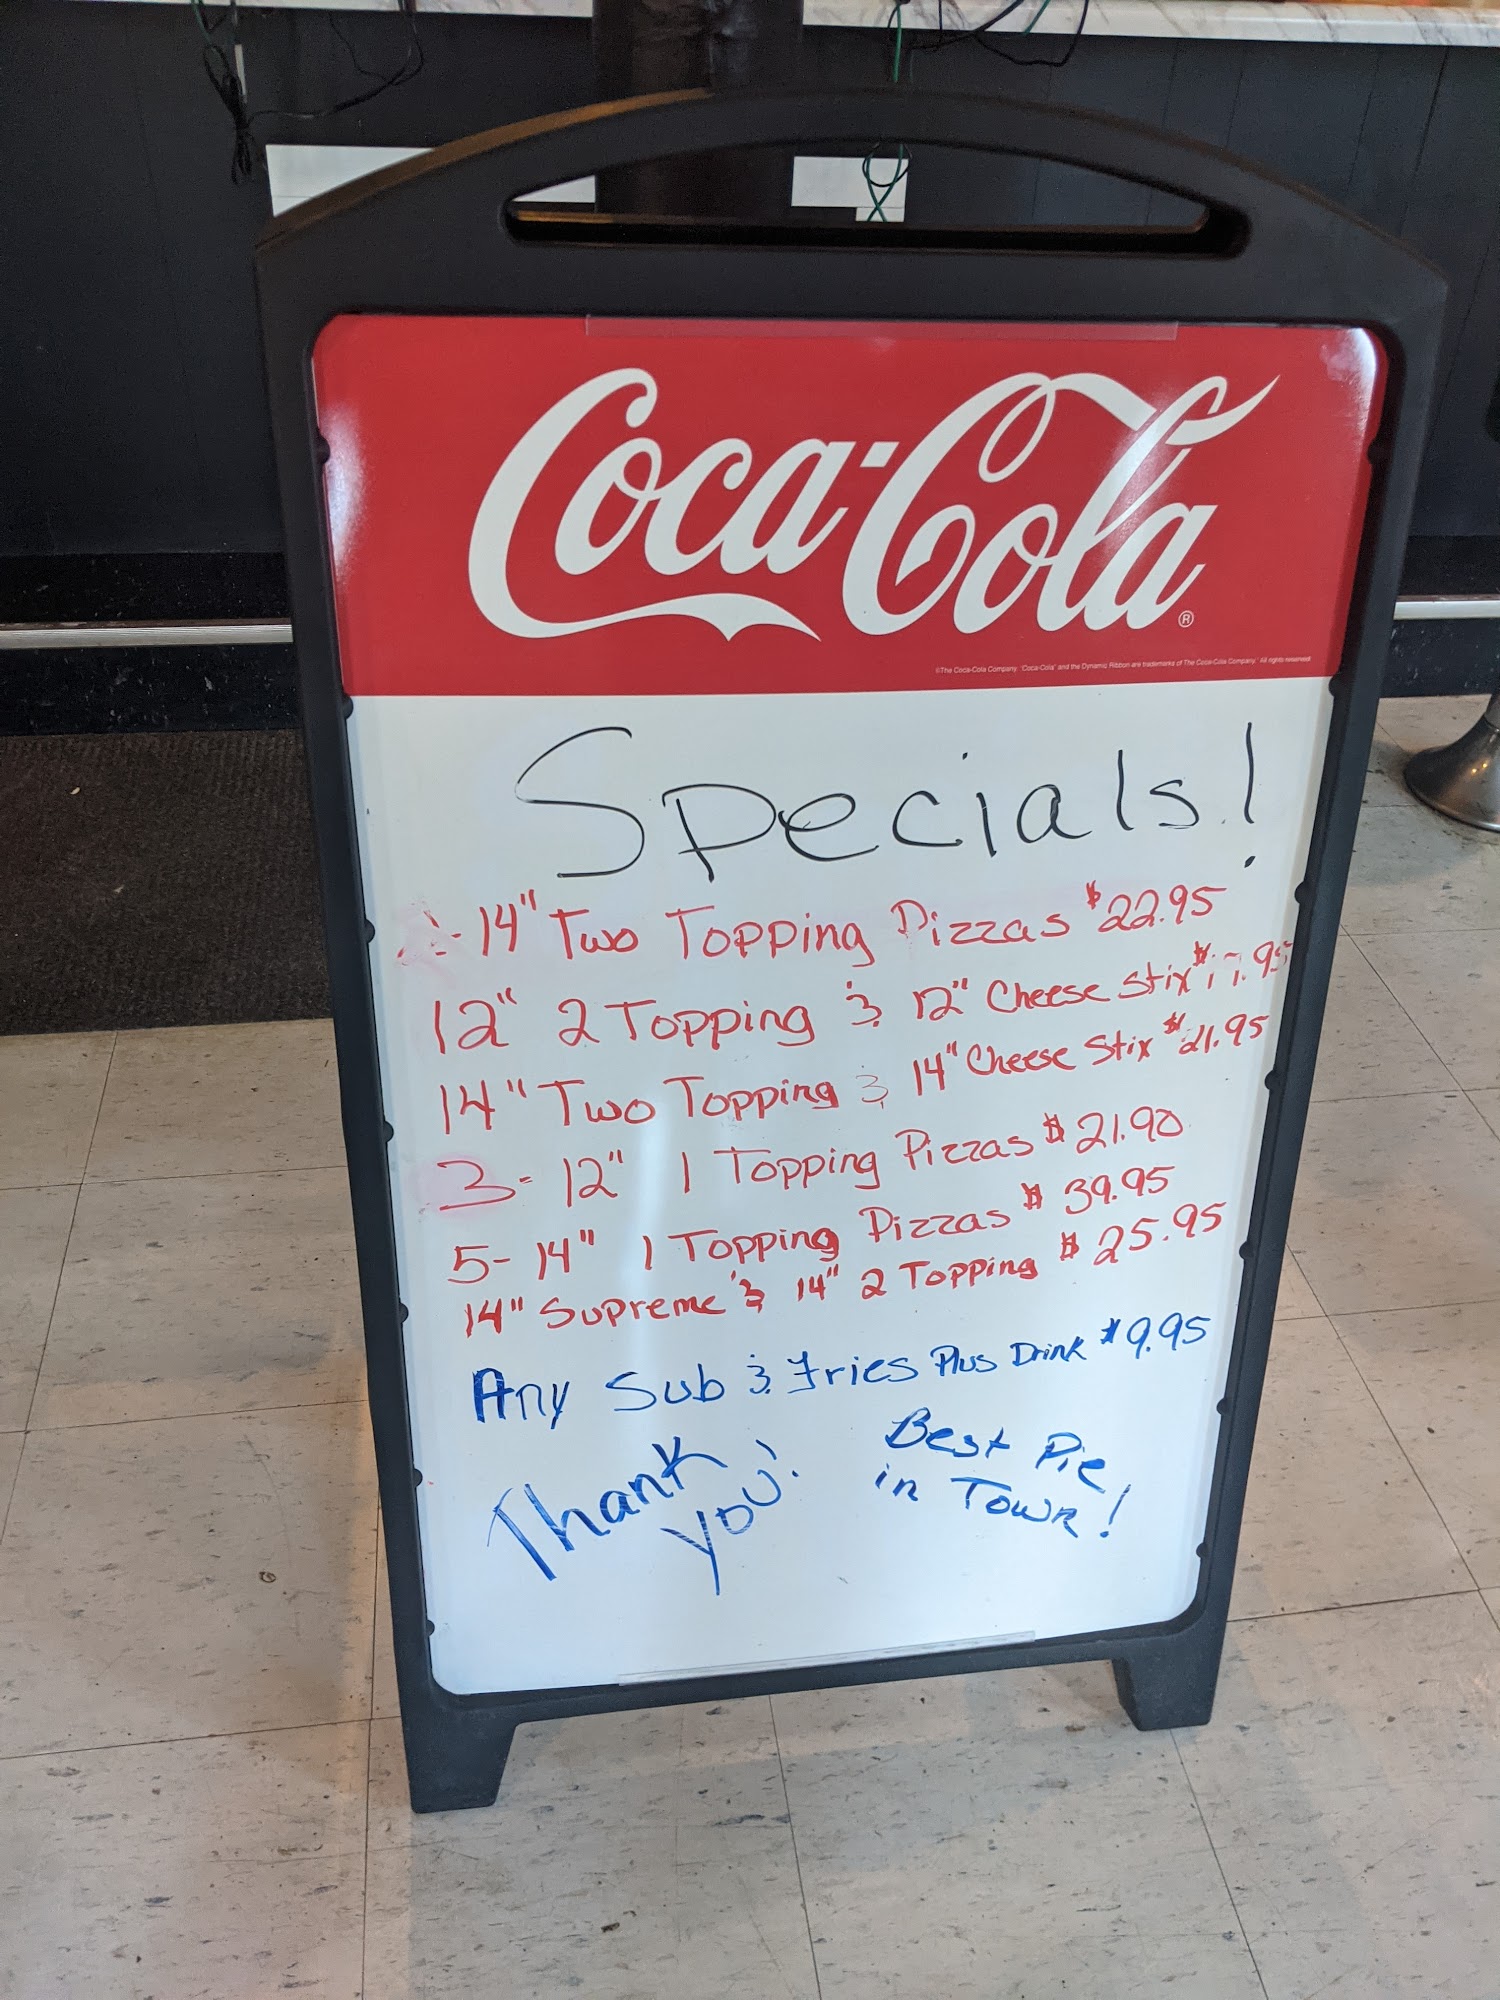 Coca-Cola®
©The Coca-Cola Company. "Coca-Cola" and the Dynamic Ribbon are trademarks of The Coca-Cola Company. All rights reserved.
Specials!
- 14" Two Topping Pizzas $22.95
12" 2 Topping & 12" Cheese Stix
14" Two Topping & 14" Cheese Stix $21.95
3- 12" 1 Topping Pizzas $21.90
5- 14" 1 Topping Pizzas $39.95
14" Supreme & 14" 2 Topping $25.95
Any Sub & Fries Plus Drink $9.95
Thank
you!
Best Pie
in Town!